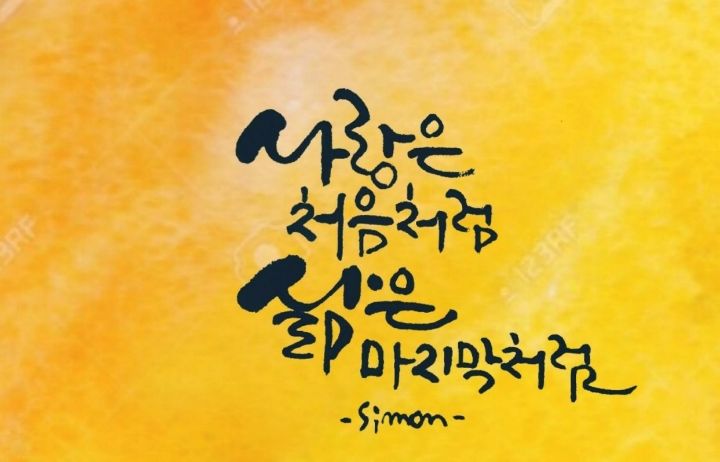 사랑은
처음처럼
삶은
마지막처럼
-Simon-
123RF
123RF